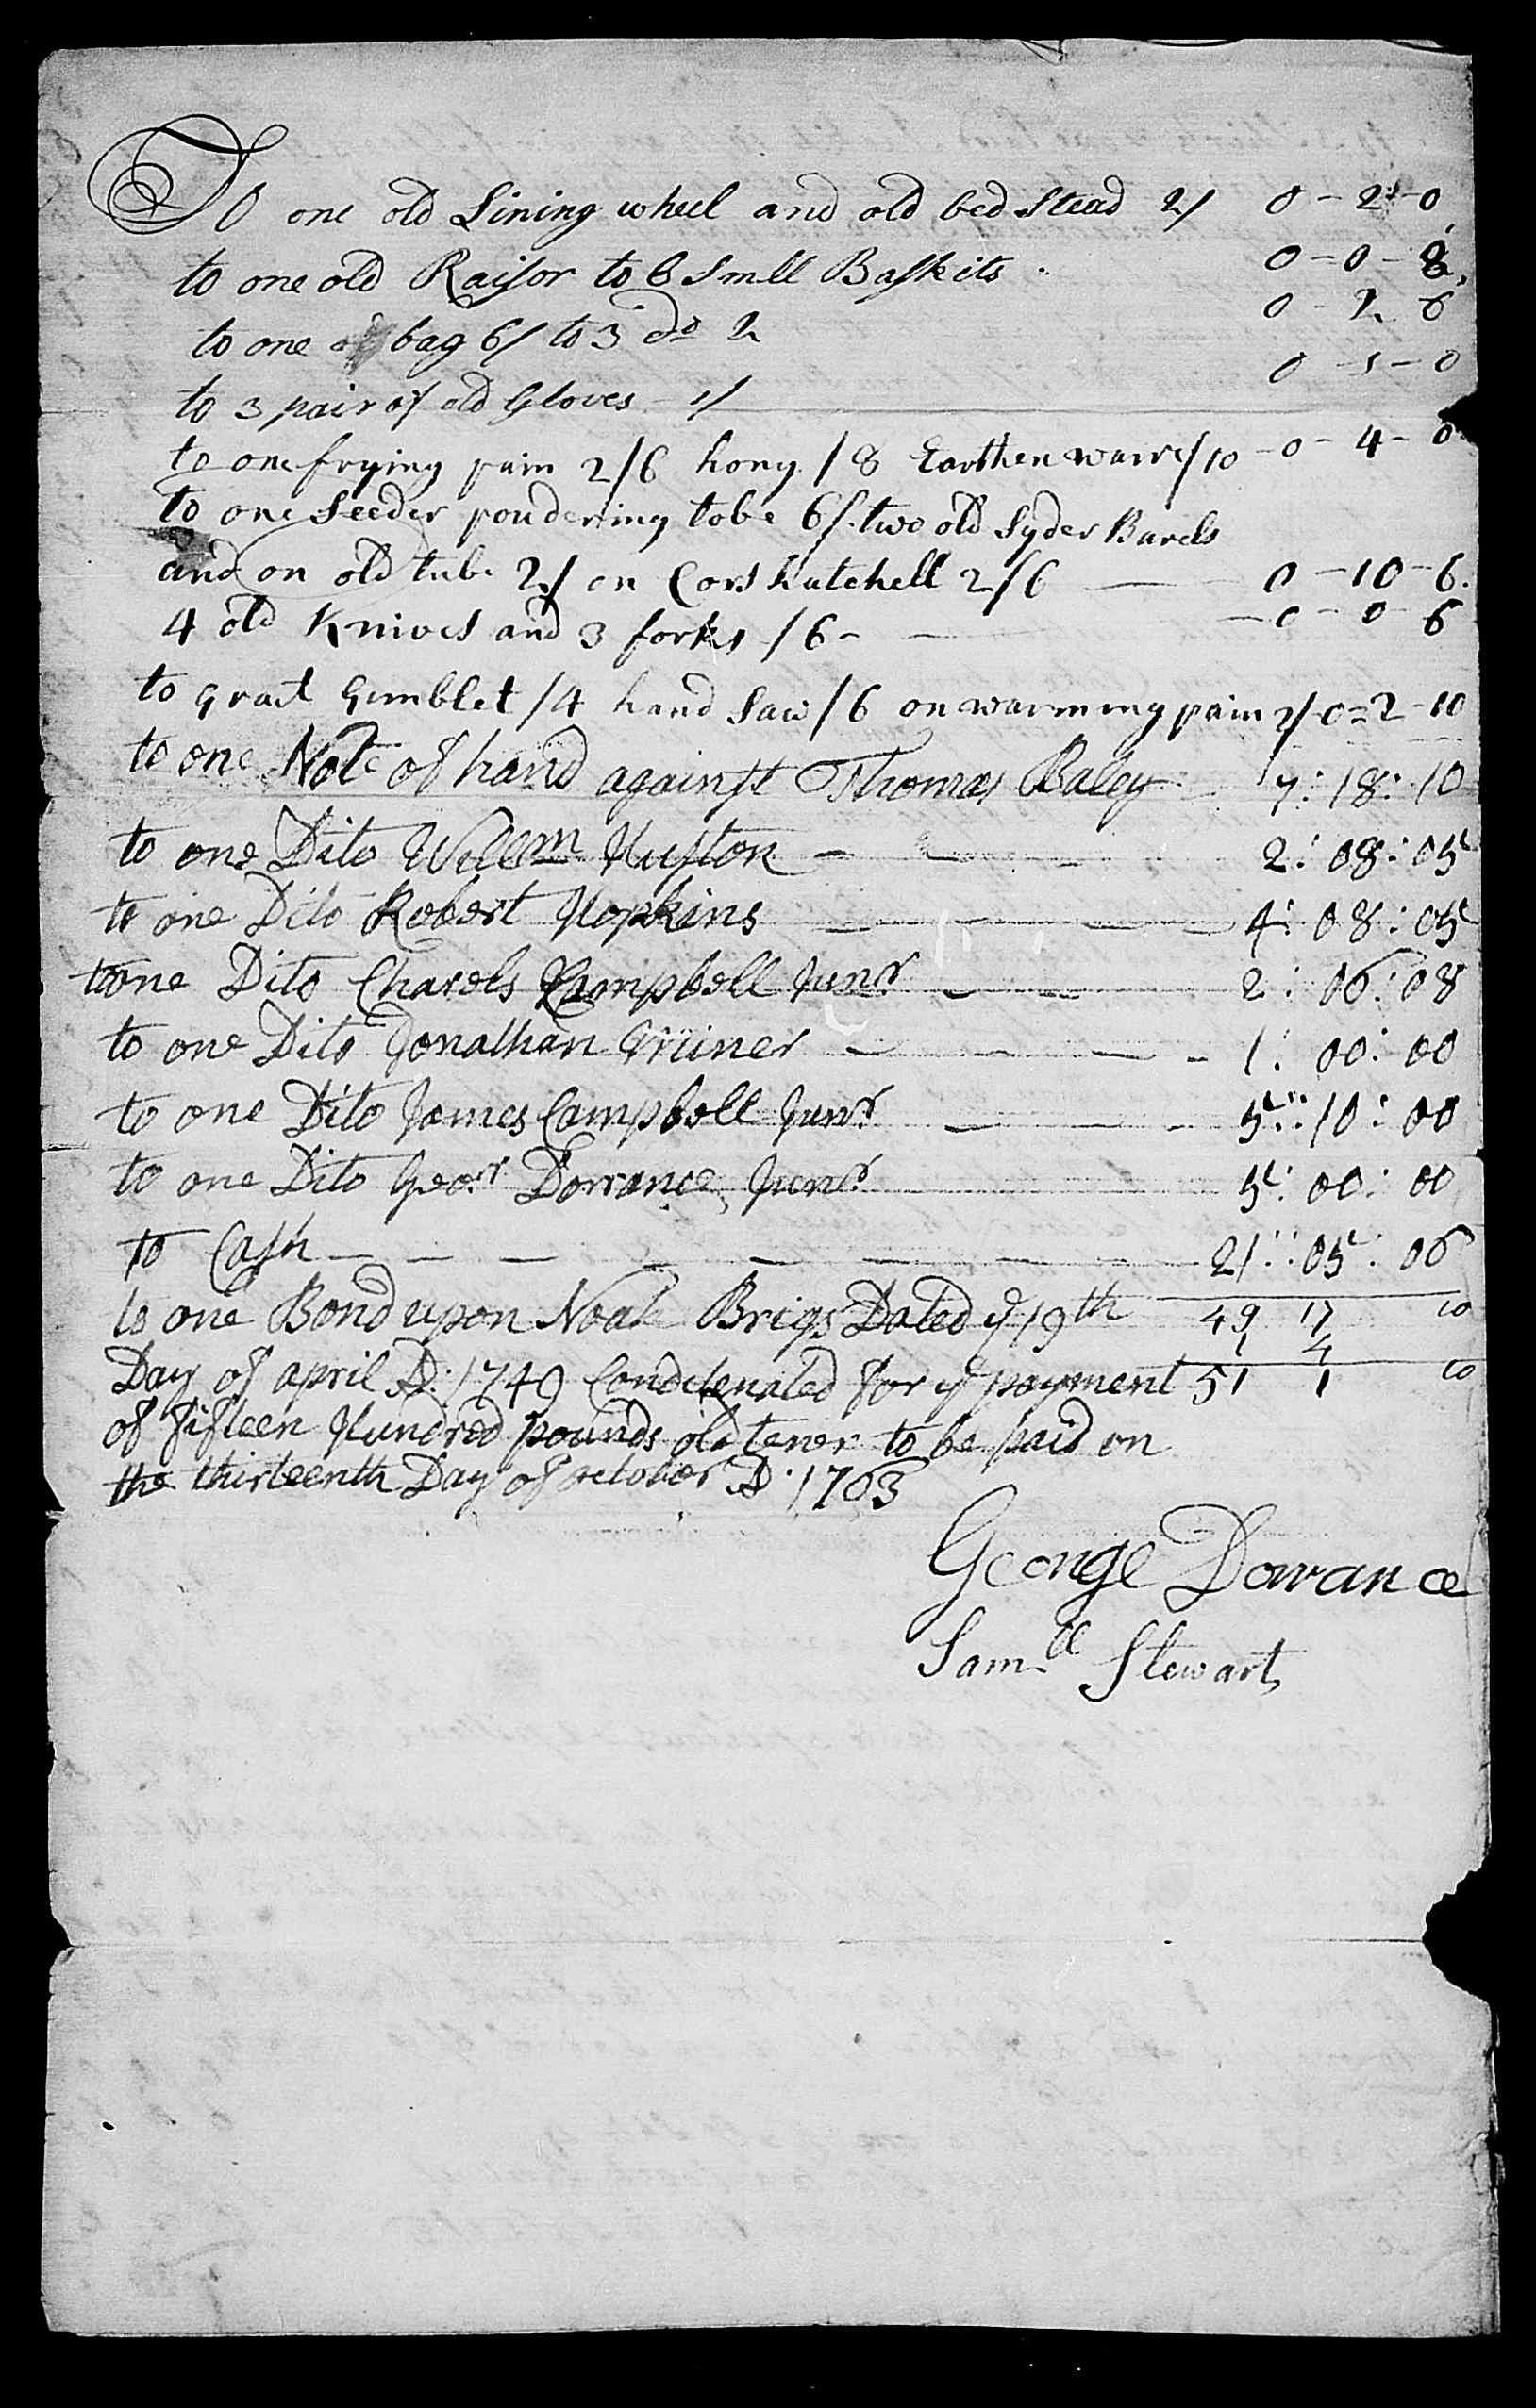 To one old Lining wheel and old bed Stead 2/ 0 - 2 - 0
to one old Raisor to 6 Smll Baskits 0 - 0 - 8
to one bag 6/ to 3 do 2 0 - 2 6
to 3 pair of old Gloves - 1/ 0 - 1 - 0
to one frying pain 2/6 hony /8 Earthen warre /10 - 0 - 4 - 0
to one Seeder poudering tobe 6/ two old Syder Barels
and on old tube 2/ on Cors hatchell 2/6 0 - 10 - 6
4 old Knives and 3 forks /6 - 0 - 0 - 6
to grat Gimblet /4 hand Saw /6 on warming pain 2/ 0 = 2 - 10
to one Note of hand against Thomas Baley 7 : 18 : 10
to one Dito Willm Huston 2 : 08 : 05
to one Dito Robert Hopkins 4 : 08 : 05
to one Dito Charels Campbell Junr 2 : 06 : 08
to one Dito Jonathan Griner 1 : 00 : 00
to one Dito James Campbell Junr 5 : 10 : 00
to one Dito Geor Dorrance Junr 5 : 00 : 00
to Cash 21 : 05 : 06
to one Bond upon Noah Brigs Dated ye 19th 49 17 10
1 4
Day of april D: 1749 Condetenaled for ye payment 51 1 10
of fifteen Hundred pounds old tener to be paid on
the thirteenth Day of october D. 1763
George Dorrance
Samll Stewart